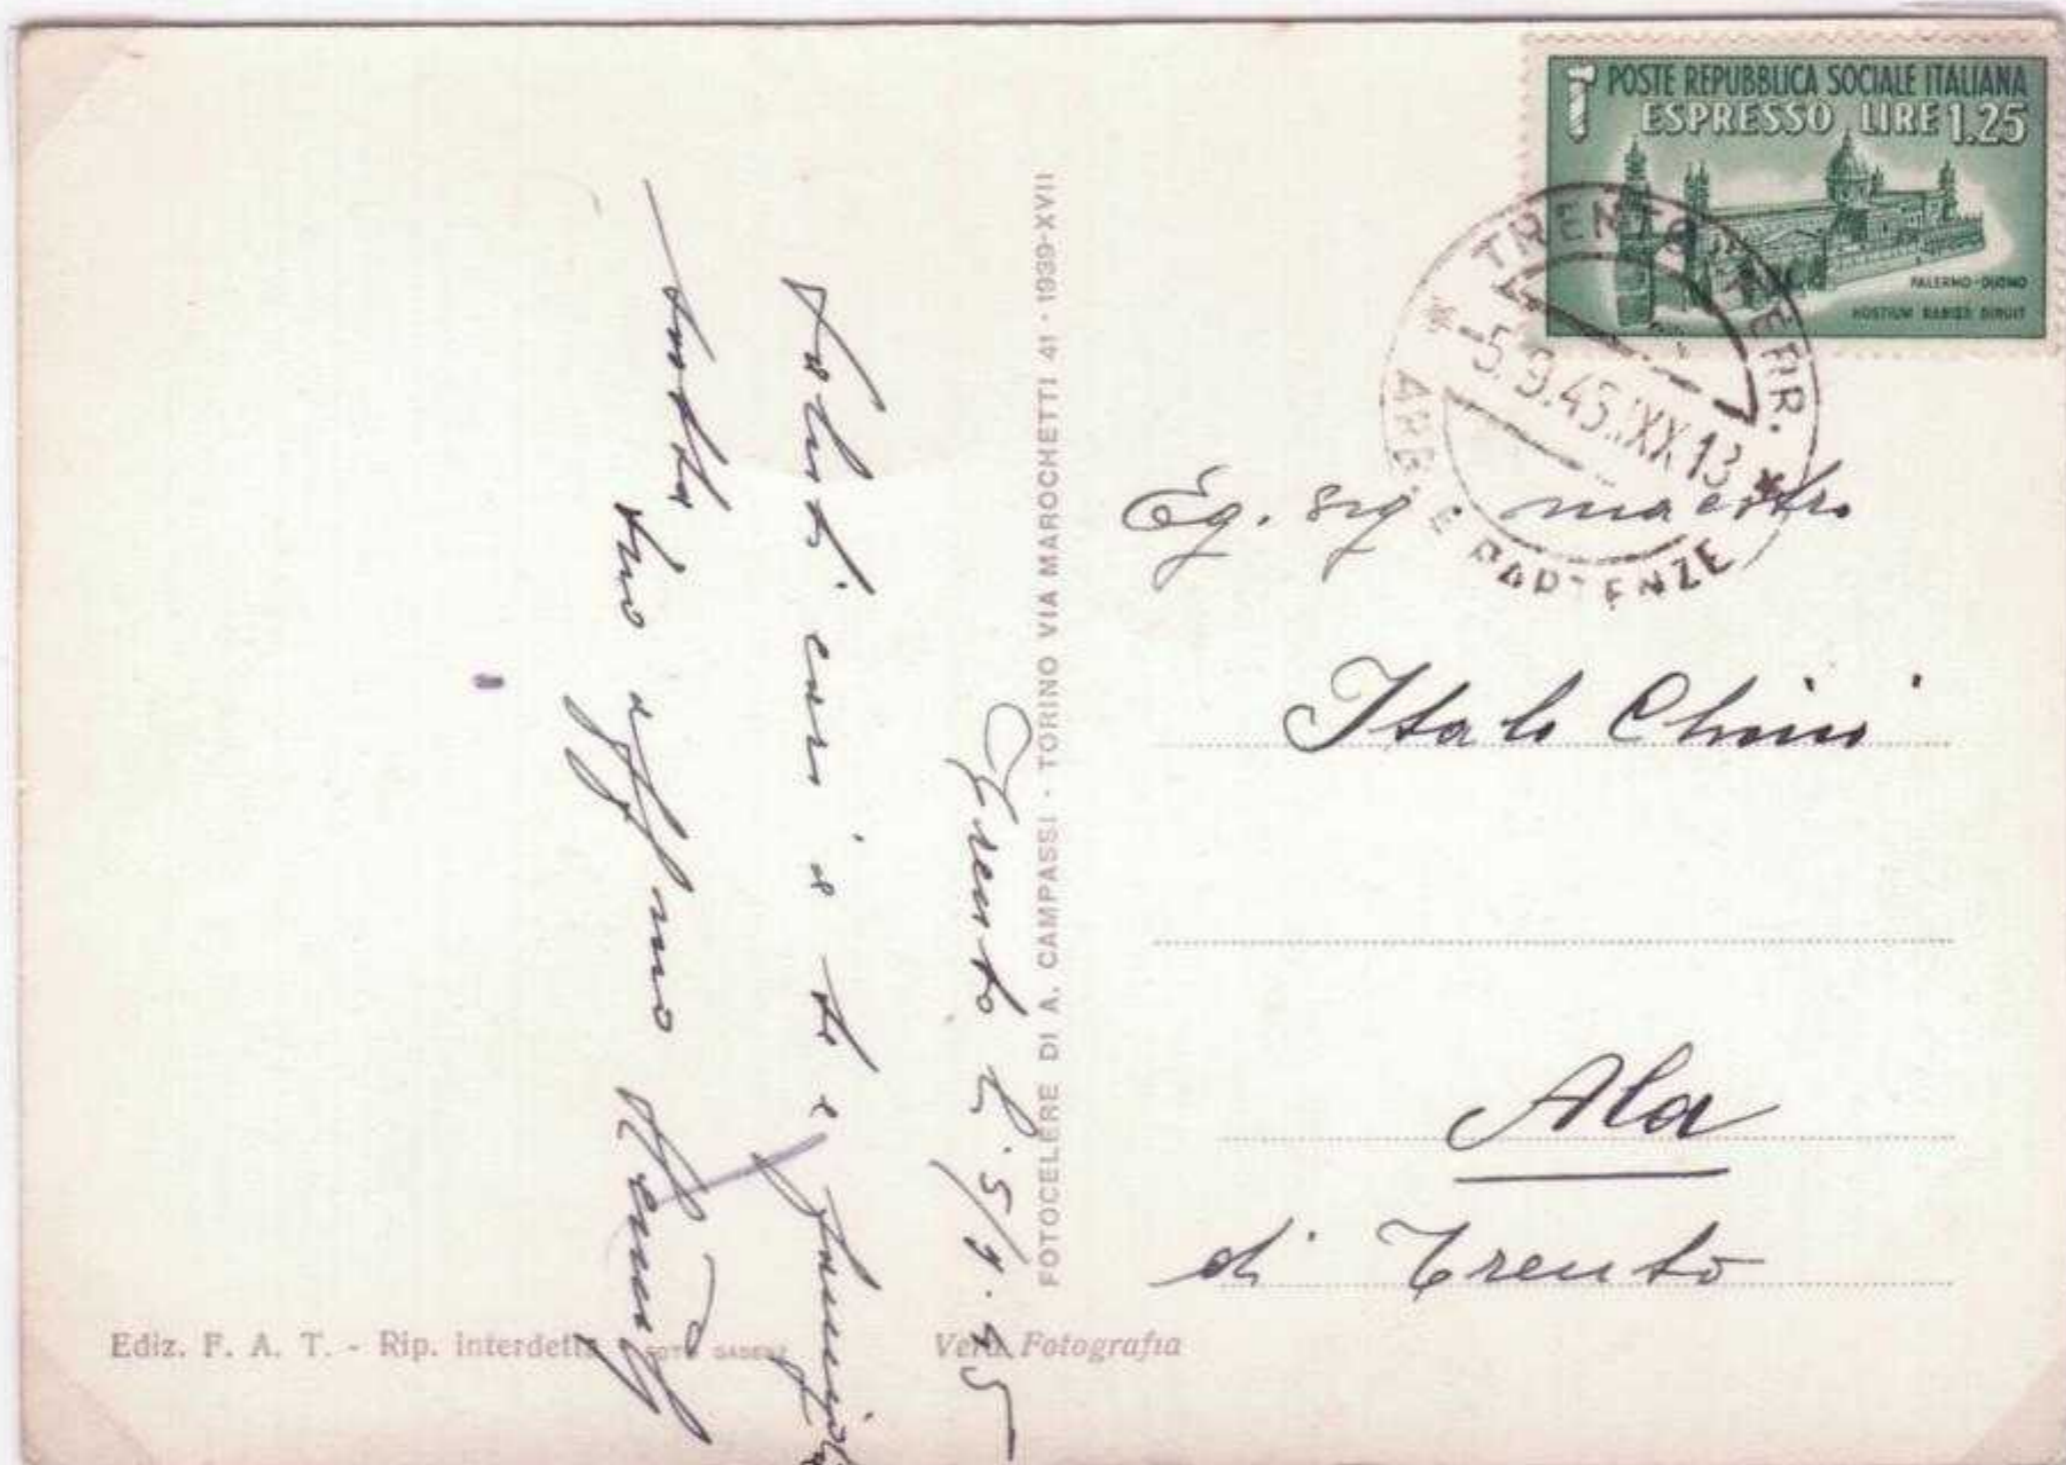 POSTE REPUBBLICA SOCIALE ITALIANA
ESPRESSO LIRE 1.25
PALERMO-DUOMO
HOSTIUM RABIES DIRUIT
* TRENTO FERR. *
-5.9.45.XX 13
ARR. E PARTENZE
Eg. sig. maestro
Italo Chini
Ala
di Trento
FOTOCELERE DI A. CAMPASSI - TORINO VIA MAROCHETTI 41 - 1939-XVII
Trento li 5/9.45
Saluti cari a te e famiglia
tutta
tuo aff mo
Ediz. F. A. T. - Rip. interdetta
Vera Fotografia